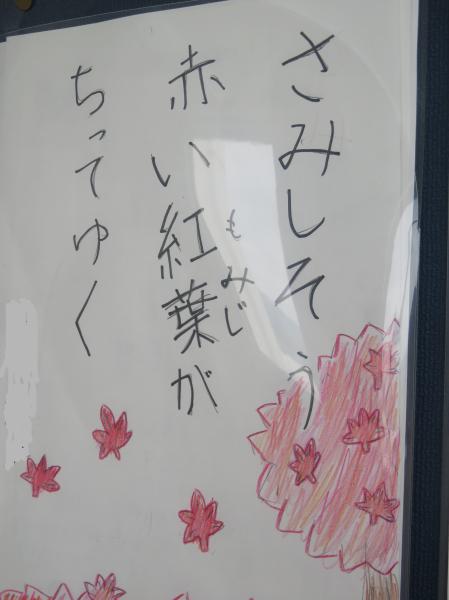 さみしそう
赤い紅葉が
もみじ
ちってゆく